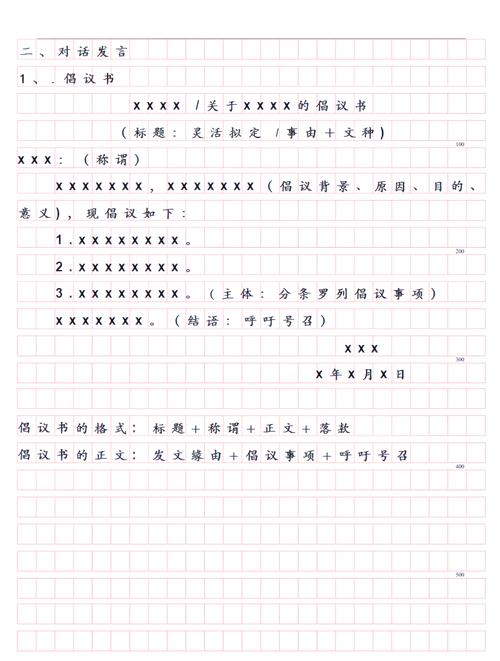 二、对话发言
1、.倡议书
xxxx /关于xxxx的倡议书
(标题:灵活拟定 /事由+文种)
100
xxx:(称谓)
xxxxxxx,xxxxxxx(倡议背景、原因、目的、
意义),现倡议如下:
1.xxxxxxxx。
200
2.xxxxxxxx。
3.xxxxxxxx。(主体:分条罗列倡议事项)
xxxxxxx。(结语:呼吁号召)
xxx
300
x年x月x日
倡议书的格式:标题+称谓+正文+落款
倡议书的正文:发文缘由+倡议事项+呼吁号召
400
500